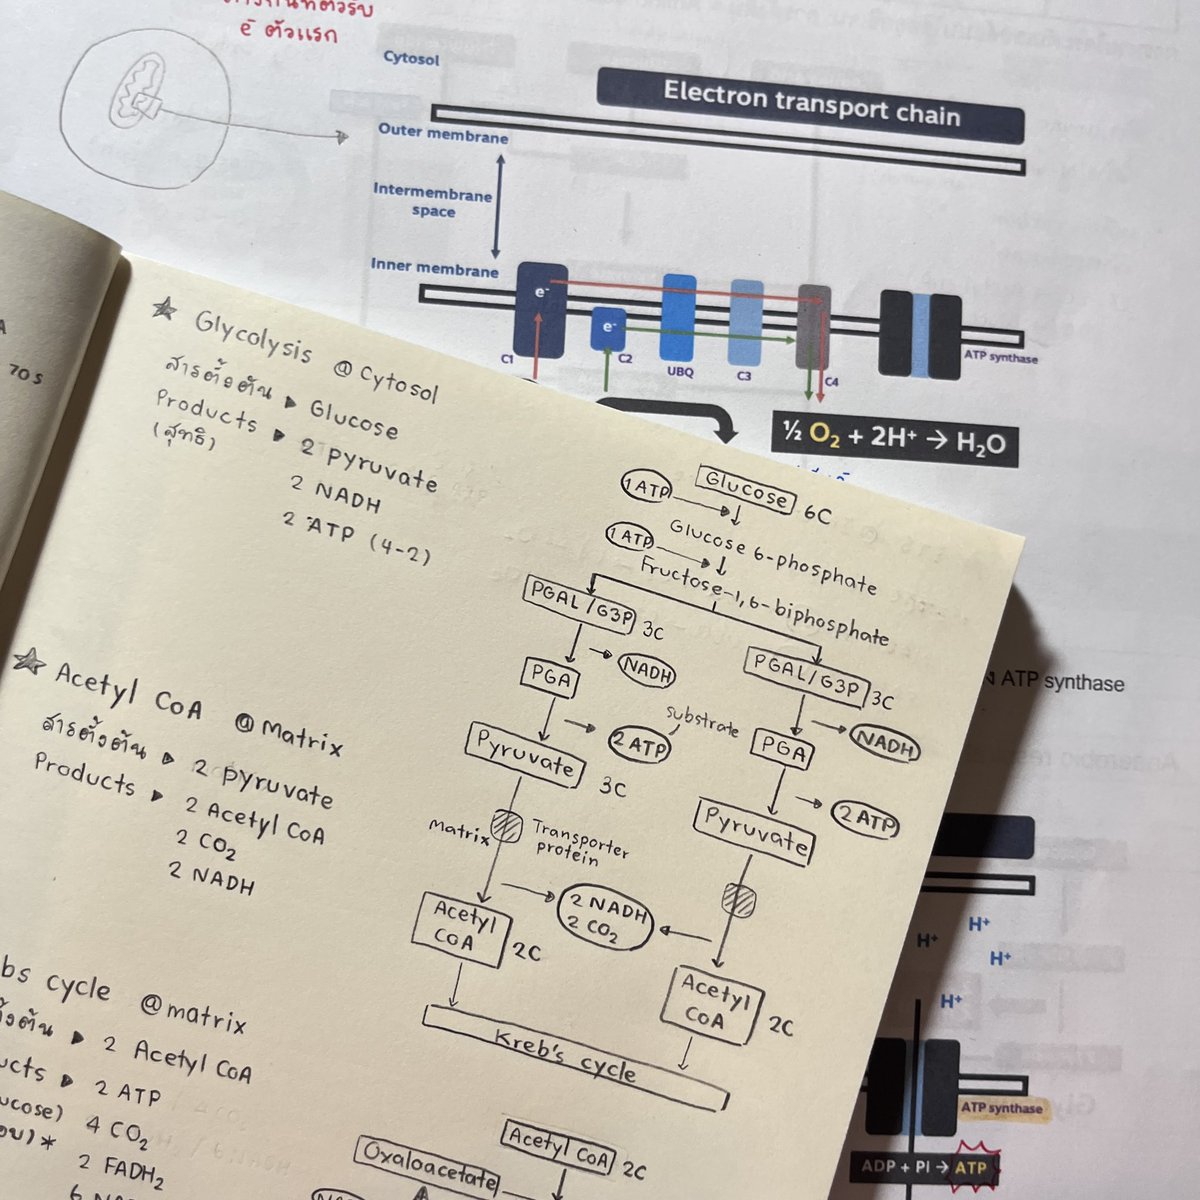 e⁻ ตัวแรก
Cytosol
Electron transport chain
Outer membrane
Intermembrane
space
Inner membrane
e⁻
e⁻
C1
C2
UBQ
C3
C4
ATP synthase
½ O₂ + 2H⁺ → H₂O
ATP synthase
H⁺
H⁺
H⁺
H⁺
ATP synthase
ADP + PI → ATP
70 S
★ Glycolysis @ Cytosol
สารตั้งต้น ▶ Glucose
Products ▶ 2 pyruvate
(สุทธิ)
2 NADH
2 ATP (4-2)
★ Acetyl CoA @ Matrix
สารตั้งต้น ▶ 2 pyruvate
Products ▶ 2 Acetyl CoA
2 CO₂
2 NADH
bs cycle @ matrix
ั้งต้น ▶ 2 Acetyl CoA
ucts ▶ 2 ATP
ucose) 4 CO₂
อบ) *
2 FADH₂
6 NA
1 ATP
Glucose 6C
1 ATP
Glucose 6-phosphate
Fructose-1,6-biphosphate
PGAL/G3P 3C
PGAL/G3P 3C
NADH
NADH
PGA
PGA
2 ATP
substrate
2 ATP
Pyruvate 3C
Pyruvate
Matrix
Transporter
protein
2 NADH
2 CO₂
Acetyl
CoA 2C
Acetyl
CoA 2C
Kreb's cycle
Acetyl CoA 2C
Oxaloacetate